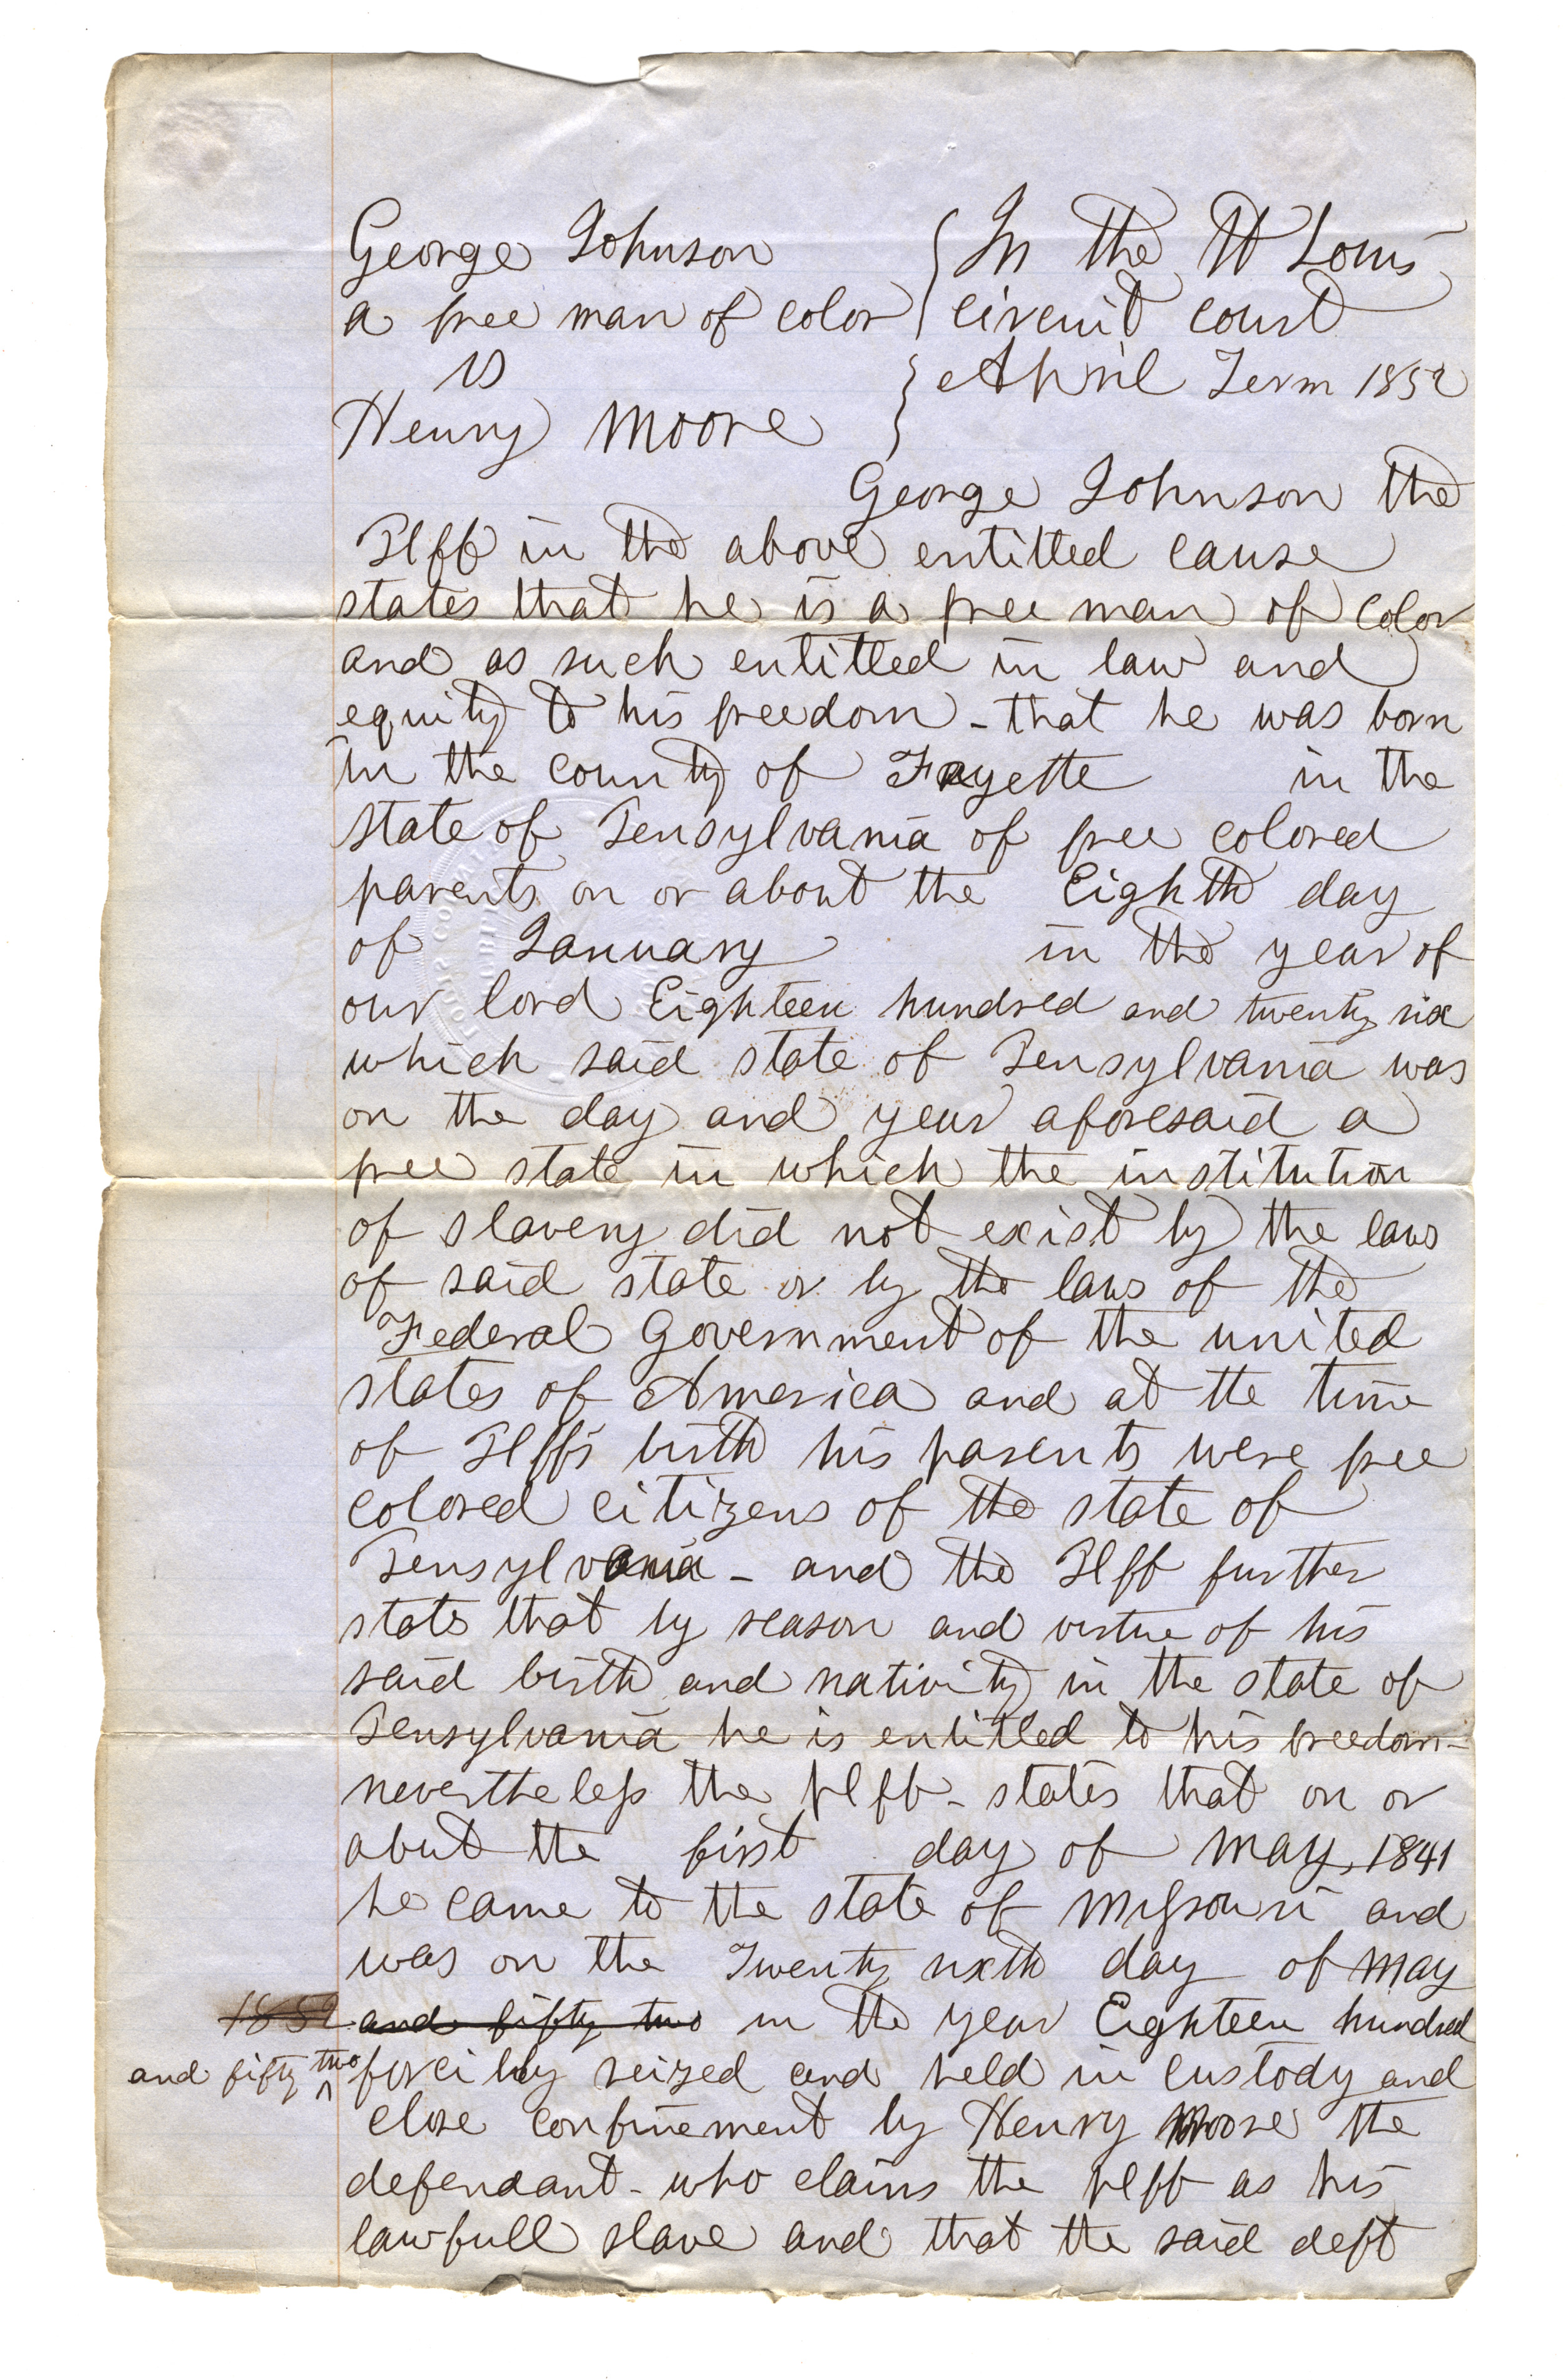 George Johnson
a free man of color
vs
Henry Moore
In the St Louis
circuit court
April Term 1852
George Johnson the
Plff in the above entitled cause
states that he is a free man of color
and as such entitled in law and
equity to his freedom - that he was born
in the county of Fayette in the
state of Pensylvania of free colored
parents on or about the Eighth day
of January in the year of
our lord Eighteen hundred and twenty six
which said state of Pensylvania was
on the day and year aforesaid a
free state in which the institution
of slavery did not exist by the laws
of said state or by the laws of the
Federal Government of the united
states of America and at the time
of Plffs birth his parents were free
colored citizens of the state of
Pensylvania - and the Plff further
states that by reason and virtue of his
said birth and nativity in the state of
Pensylvania he is entitled to his freedom -
nevertheless the plff - states that on or
about the first day of May, 1841
he came to the state of Missouri and
was on the Twenty sixth day of May
1852 and fifty two in the year Eighteen hundred
and fifty two forcibly seized and held in custody and
close confinement by Henry Moore the
defendant - who claims the plff as his
lawfull slave and that the said deft